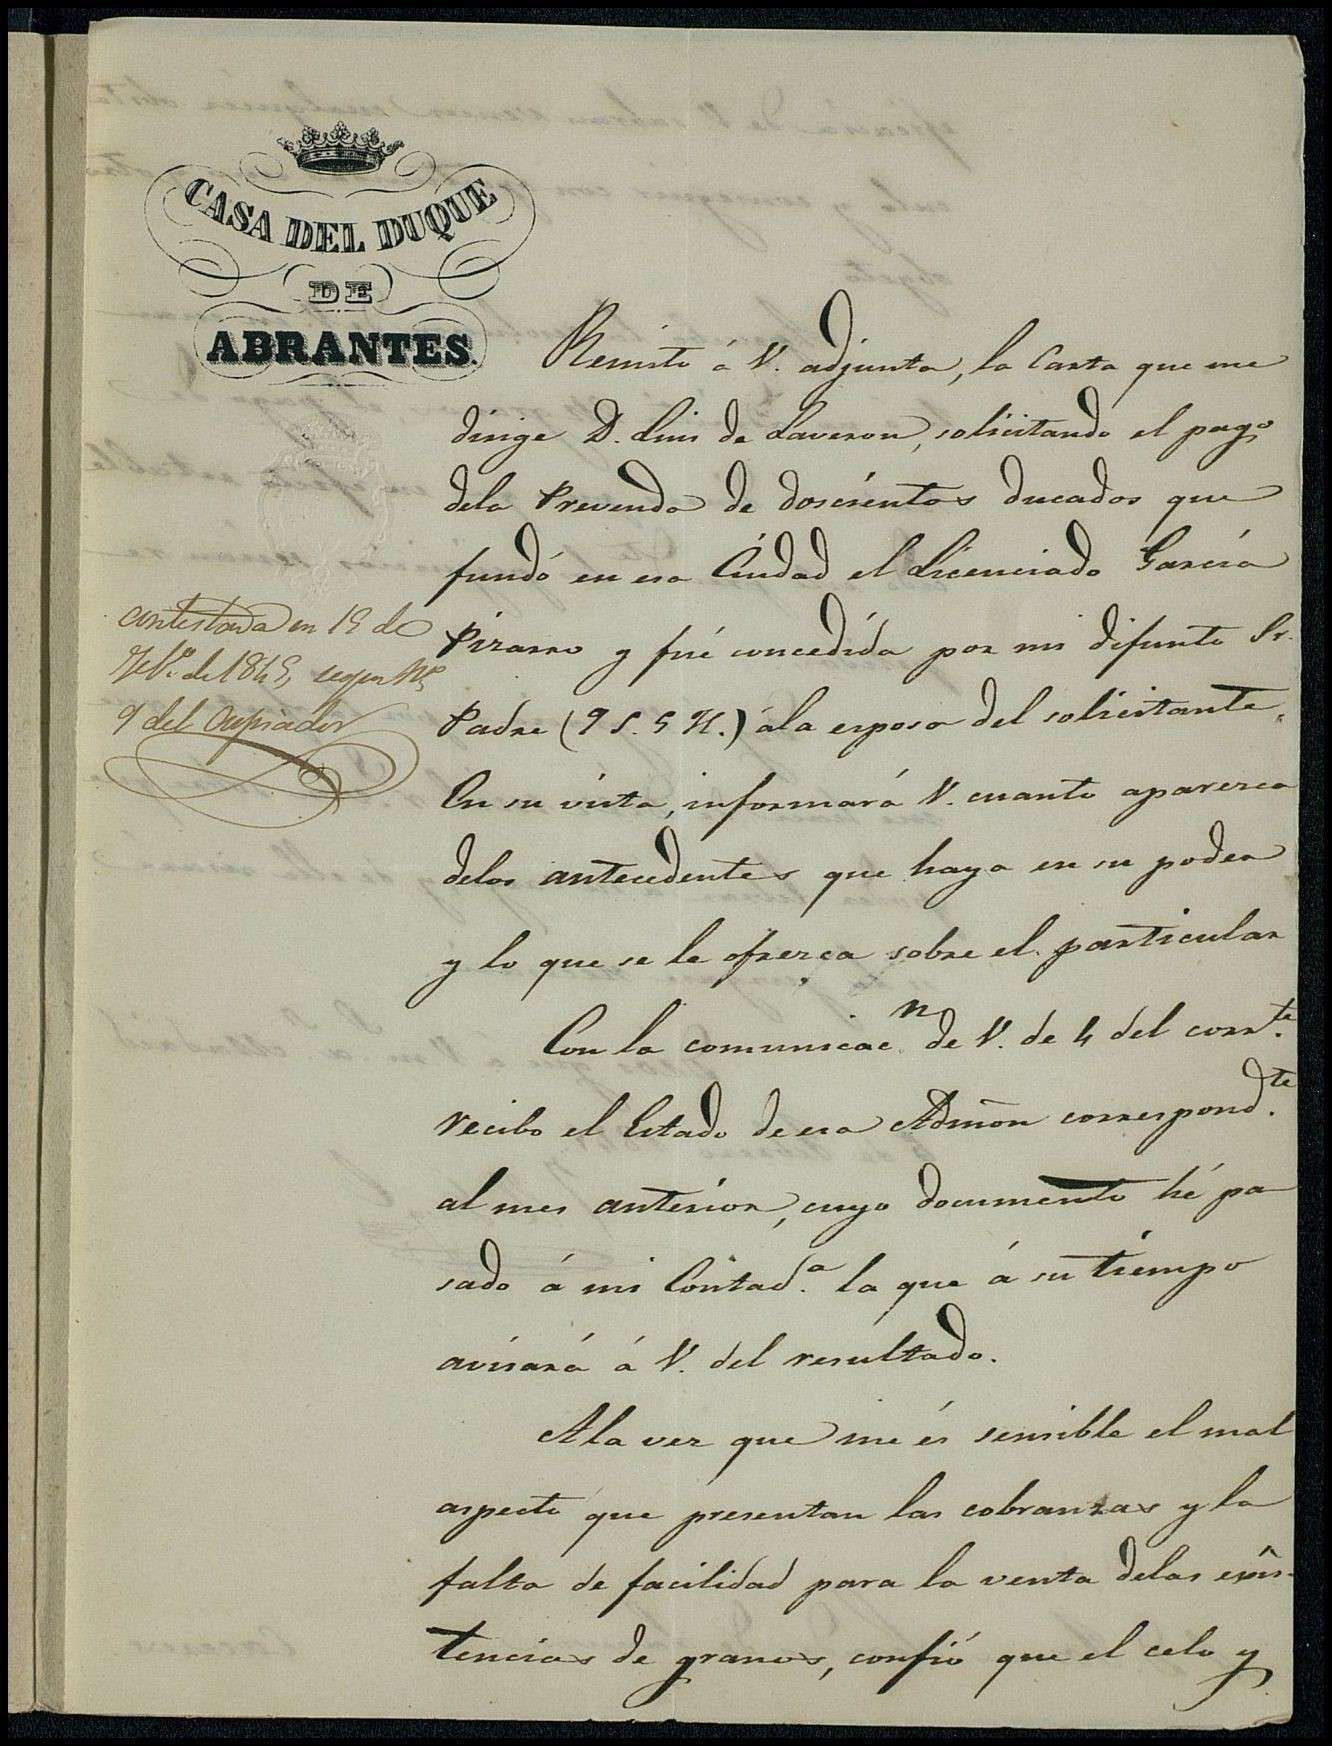 CASA DEL DUQUE
DE
ABRANTES.
Remito á V. adjunta, la Carta que me
dirige D. Luis de Laveron, solicitando el pago
dela Prevenda de doscientos ducados que
fundó en esa Ciudad el Licenciado García
Pizarro y fué concedida por mi difunto Sr.
Padre (q S. G H.) ála esposa del solicitante.
En su vista, informará V. cuanto aparezca
delos antecedentes que haya en su poder
y lo que se le ofrezca sobre el particular
contestada en 19 de
Feb.º de 1849, segun Nº
9 del Copiador
Con la comunicac.n de V. de 4 del corr.te
recibo el Estado de esa Admōn correspond.te
al mes anterior, cuyo documento hé pa
sado á mi Contad.a la que á su tiempo
avisará á V. del resultado.
Ala vez que me és sensible el mal
aspecto que presentan las cobranzas y la
falta de facilidad para la venta delas exîs-
tencias de granos, confió que el celo y